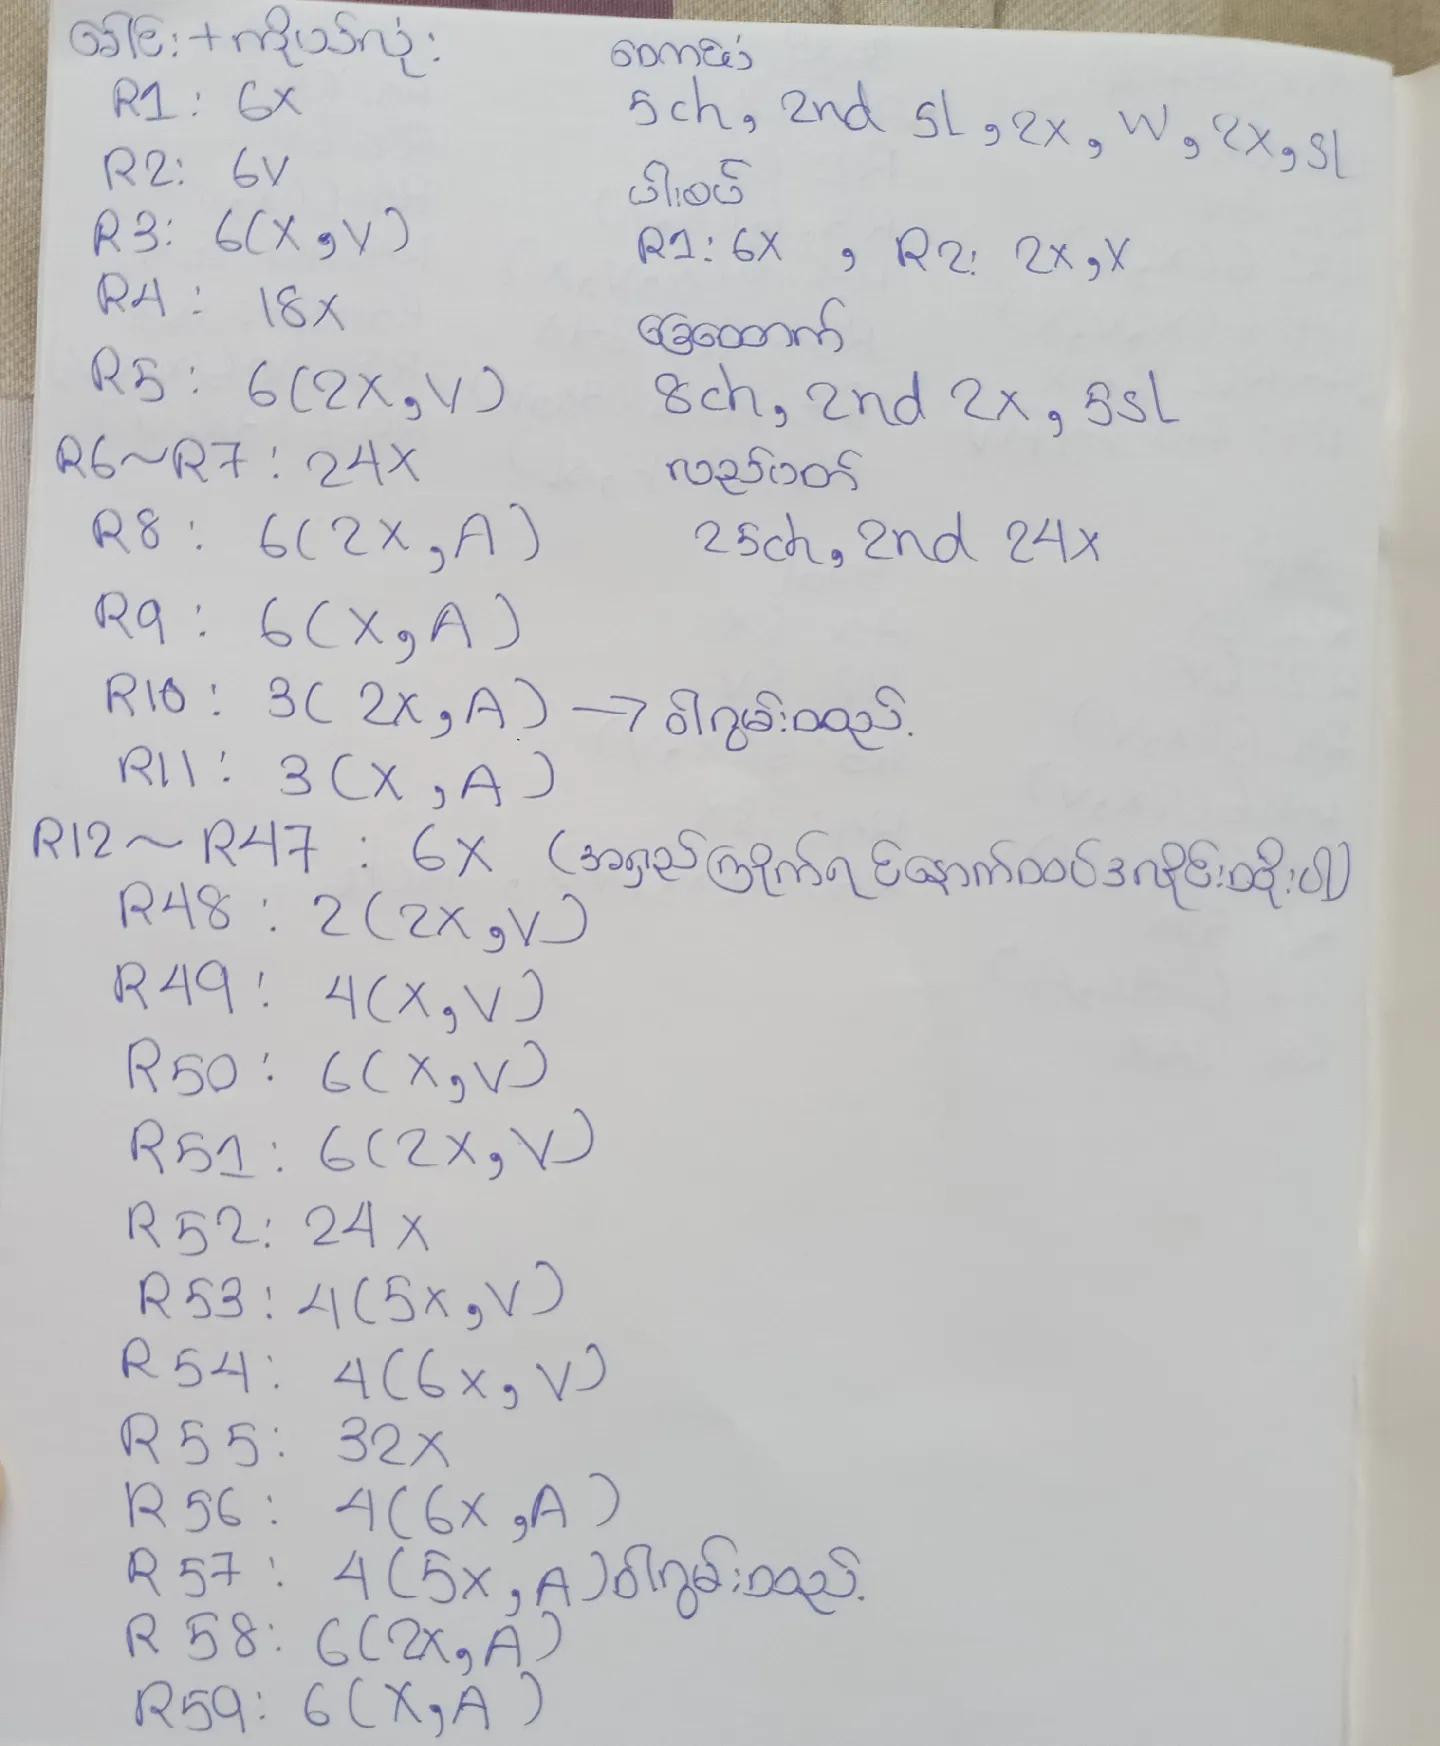 ခေါင်း+ကိုယ်လုံး
R1: 6X
R2: 6V
R3: 6(X,V)
R4: 18X
R5: 6(2X,V)
R6~R7: 24X
R8: 6(2X,A)
R9: 6(X,A)
R10: 3(2X,A) → ဝါဂွမ်းထည့်.
R11: 3(X,A)
R12~R47: 6X (အရှည်ကြိုက်ရင်နောက်ထပ်၁လိုင်းထိုးပါ)
R48: 2(2X,V)
R49: 4(X,V)
R50: 6(X,V)
R51: 6(2X,V)
R52: 24X
R53: 4(5X,V)
R54: 4(6X,V)
R55: 32X
R56: 4(6X,A)
R57: 4(5X,A) ဝါဂွမ်းထည့်.
R58: 6(2X,A)
R59: 6(X,A)
5ch, 2nd SL, 2X, W, 2X, SL
ပါးစပ်
R1: 6X, R2: 2X,V
ခြေထောက်
8ch, 2nd 2X, 5SL
လည်ပတ်
25ch, 2nd 24X